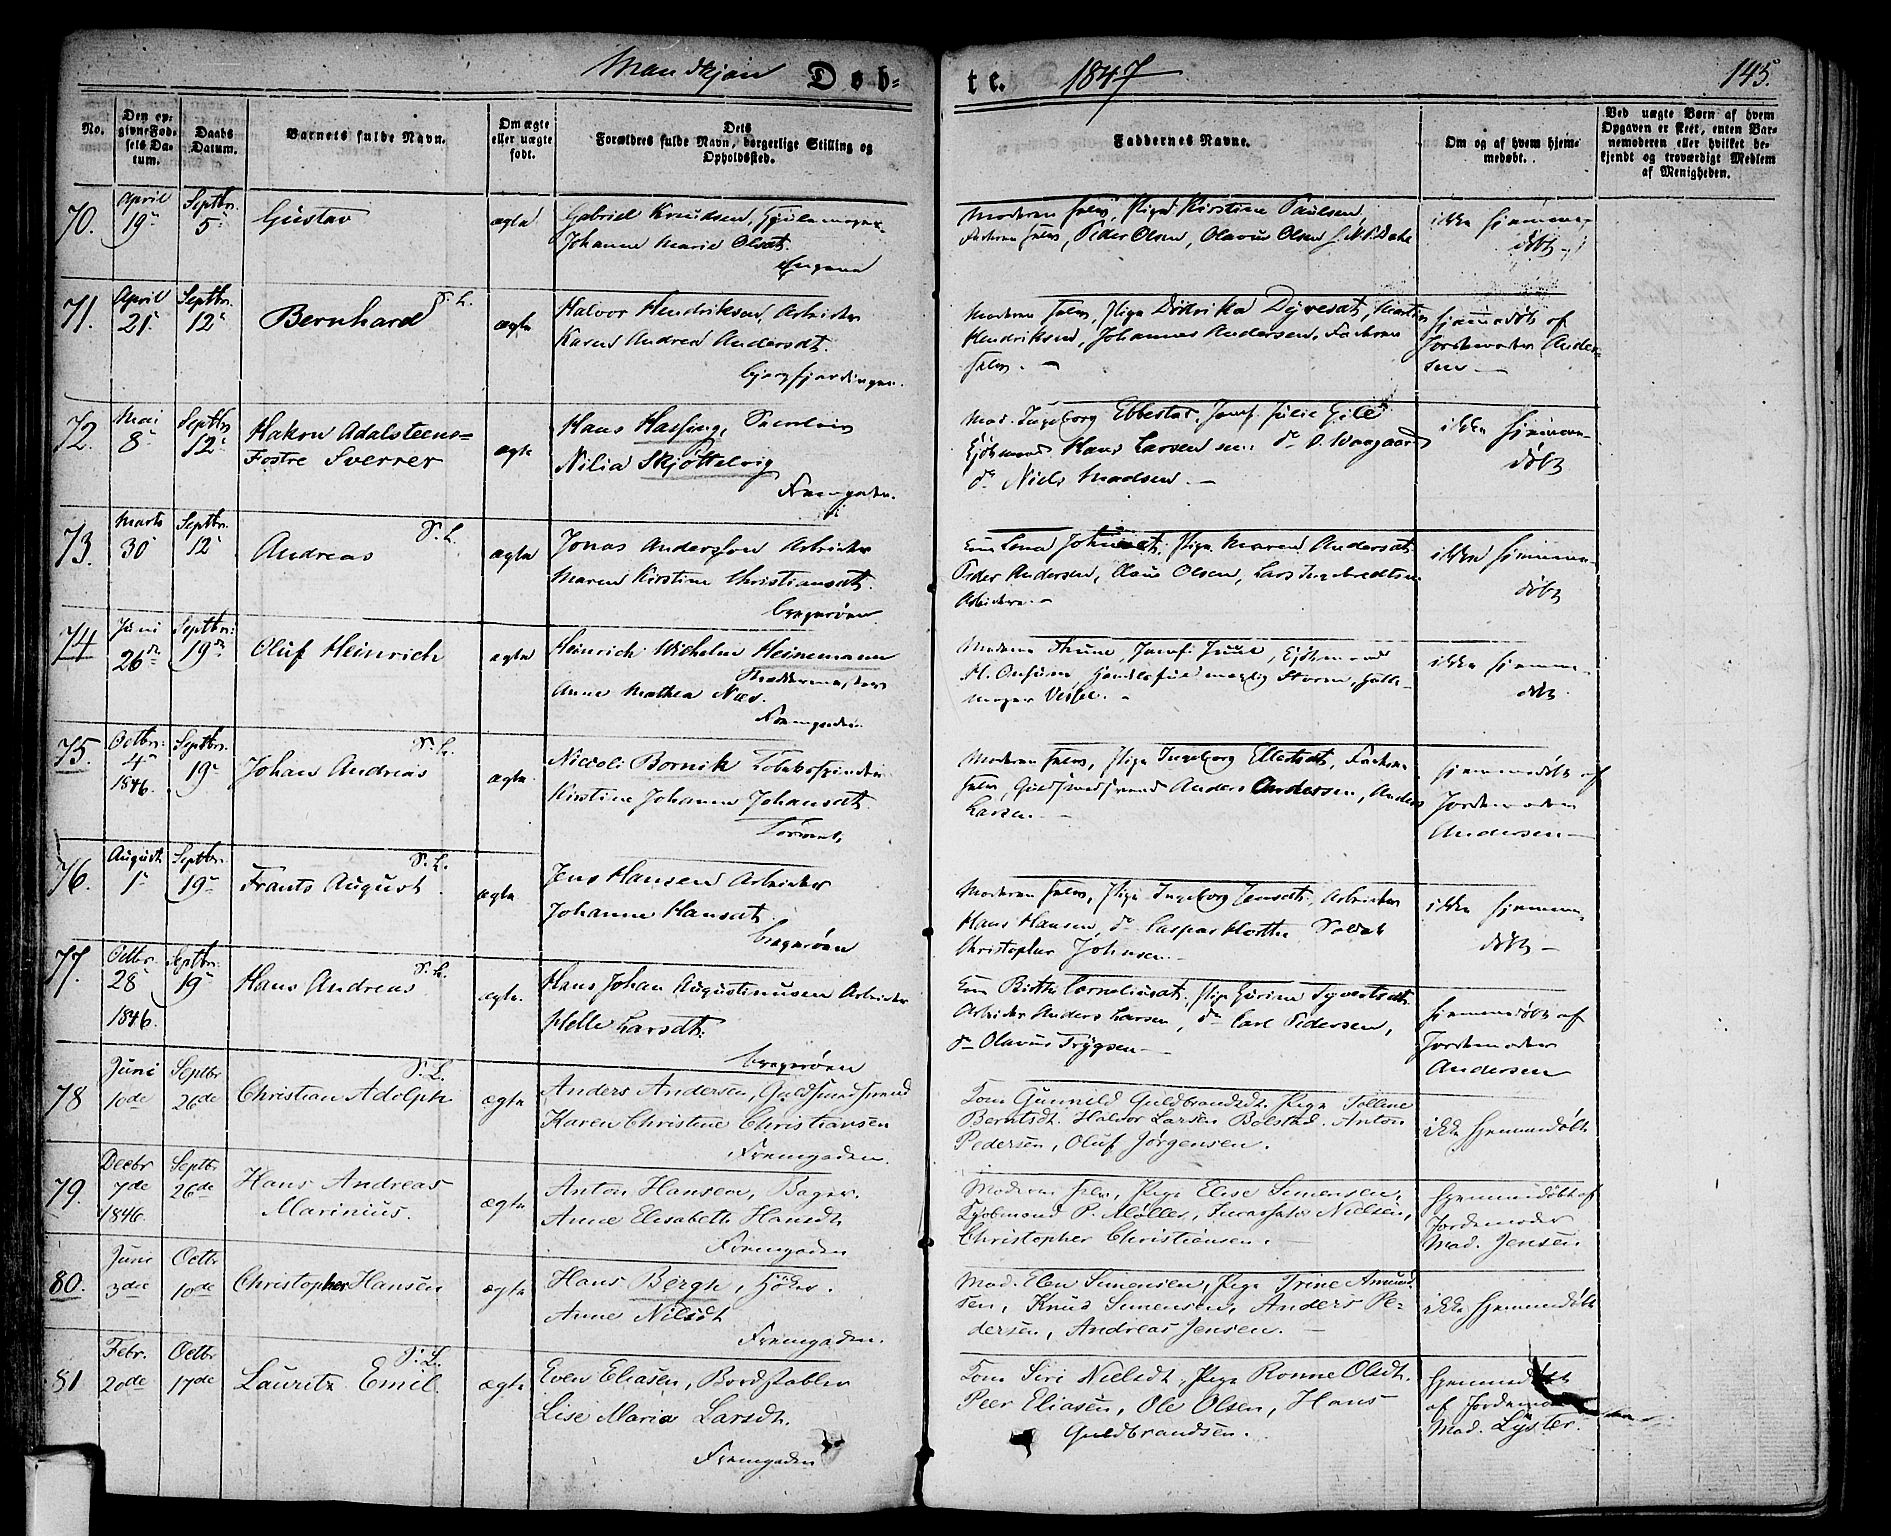 Mandkjøn Døb-
te. 1847 145.
No.
Den opgivne Fødsels Datum.
Daabs Datum.
Barnets fulde Navn.
Om ægte eller uægte født.
Dets Forældres fulde Navn, borgerlige Stilling og Opholdssted.
Faddernes Navne.
Om og af hvem hjemmedøbt.
Ved uægte Børn af hvem Opgaven er skeet, enten Barnemoderen eller hvilket bekjendt og troværdigt Medlem af Menigheden.
70. April 19 Septbr. 5 Gustav ægte
Gabriel Knudsen,
Johanne Marie Olsdt.
Moderen selv, Pige Kirstine Paulsen,
Faderen selv, Peder Olsen, Olavus Olsen
ikke hjemme-
døbt
71. April 21 Septbr. 12 Bernhard S. L. ægte
Halvor Hendriksen, Arbeider
Karen Andrea Andersdt.
Moderen selv, Pige Didrika Dyresdt, Martin
Hendriksen, Johannes Andersen, Faderen
selv.
hjemmedøbt af
Jordemoder Ander-
sen
72. Mai 8 Septbr. 12 Hakon Adalsteens=
Fostre Sverrer ægte
Hans Hassing,
Nilia Skjøttelvig
Fremgaden.
Mad. Ingeborg Ebbestad, Jomf. Julie
Kjøbmand Hans Larsen sen: do O. Waagaard
do Niels Madsen.
ikke hjemme-
døbt
73. Marts 30 Septbr. 12 Andreas S. L. ægte
Jonas Anderson Arbeider
Maren Kirstine Christiansdt.
Bragerøen
Kone Lena Pige Maren Andersdt.
Peder Andersen, Claus Olsen, Lars Ingebredtsen
Arbeidere.
ikke hjemme-
døbt
74 Juni 26de Septbr. 19de Oluf Heinrich ægte
Heinrich Wilhelm Heinemann
Anne Mathea Næs.
Fremgaden.
Madame Thune, Jomf. Juul, Kjøbmand
ikke hjemme-
døbt.
75. Octbr. 4 1846. Septbr. 19 Johan Andreas S. L. ægte
Nicolai Bornik Tobakspinder
Kirstine Johanne Johansdt.
Moderen selv, Pige Ingeborg Ellefsdt, Faderen
selv, Guldsmedsvend Anders Andersen, Anders
Larsen.
hjemmedøbt af
Jordemoder
Andersen
76. August 1 Septbr. 19 Frants August S. L. ægte
Jens Hansen Arbeider
Johanne Hansdt.
Bragerøen
Moderen selv, Pige Ingeborg Jensdt, Arbeider
Hans Hansen, do Caspar Soldat
Christopher Johnsen
ikke hjemme-
døbt
77. Octbr. 28 1846. Septbr. 19 Hans Andreas S. L. ægte.
Hans Johan Augustinusen Arbeider
Helle Larsdt.
Bragerøen
Kone Birthe Corneliusdt, Pige Gurine Syvertsdt.
Arbeider Anders Larsen, do Carl Pedersen,
do Olavus Trygsen
hjemmedøbt af
Jordemoder
Andersen
78 Juni 10de Septbr 26de Christian Adolph S. L. ægte
Anders Andersen, Guldsmedsvend
Karen Christine Christiansen
Fremgaden.
Kone Gunnild Guldbrandsdt. Pige Tolline
Berntsdt. Halvor Larsen Bolstad. Anton
Pedersen, Oluf Jørgensen.
ikke hjemmedøbt
79. Decbr 7de 1846. Septbr 26de Hans Andreas
Marinius. ægte
Anton Hansen, Bager.
Anne Elisabeth Hansdt
Fremgaden
Moderen selv, Pige Elise Simensen,
Kjøbmand P. Møller, Nielsen,
Christopher Christiensen.
hjemmedøbt af
Jordemoder
Mad. Jensen
80. Juni 3die Octbr 10de Christopher Hansen ægte
Hans Bergh, Høker.
Anne Nilsdt
Fremgaden.
Mad. Elen Simensen, Pige Trine Amund-
sen, Knud Simensen, Anders Pe-
dersen, Andreas Jensen.
ikke hjemmedøbt
81 Febr. 20de Octbr 17de Lauritz Emil S. L. ægte
Even Eliasen, Bordstabler
Lise Maria Larsdt.
Fremgaden
Kone Siri Nielsdt. Pige Ronne Olsdt.
Peer Eliasen, Ole Olsen, Hans
Guldbrandsen.
hjemmedøbt
af Jordemoder
Mad. Lyster.